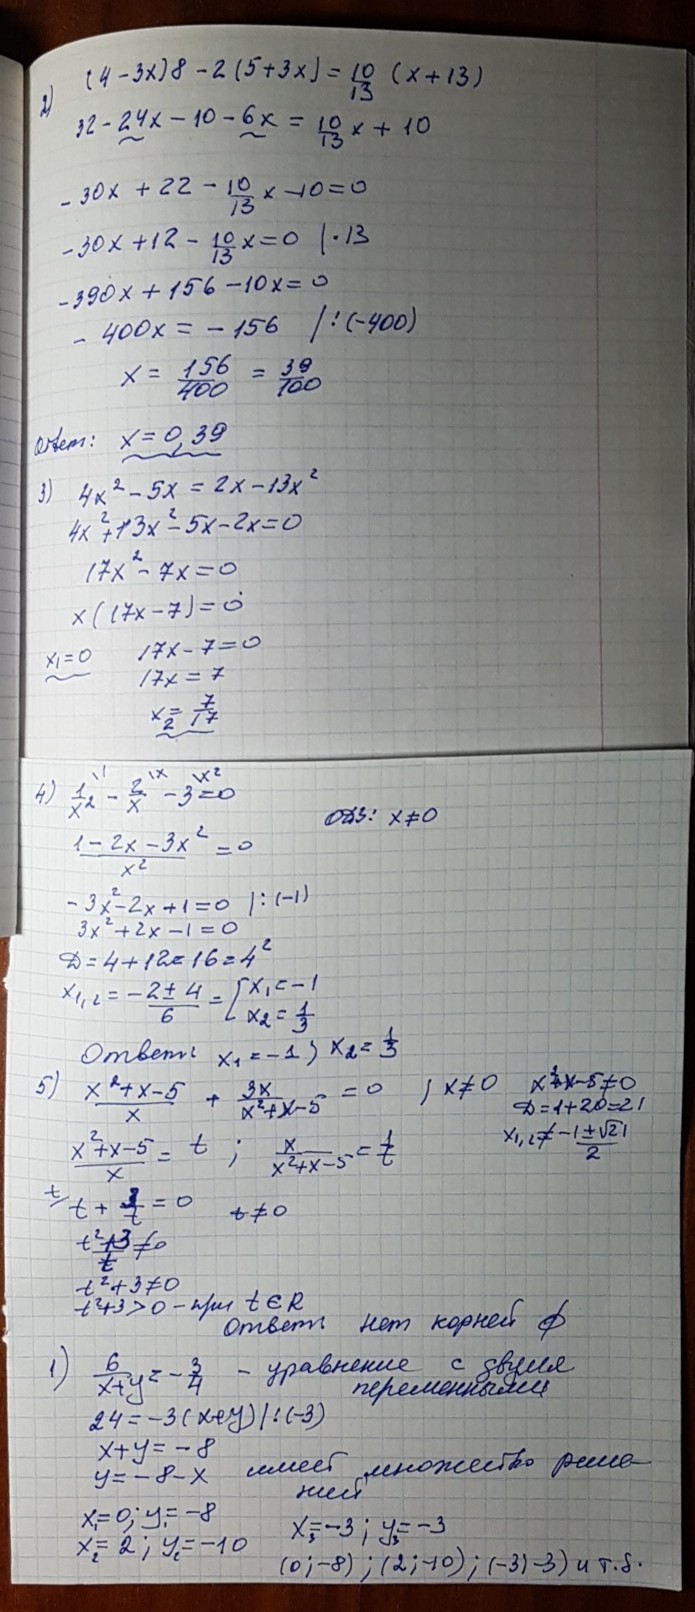 2) (4-3x)8-2(5+3x)=10/13 (x+13)
32-24x-10-6x=10/13 x+10
-30x+22-10/13 x-10=0
-30x+12-10/13 x=0 |·13
-390x+156-10x=0
-400x=-156 |:(-400)
x=156/400=39/100
Ответ: x=0,39
3) 4x²-5x=2x-13x²
4x²+13x²-5x-2x=0
17x²-7x=0
x(17x-7)=0
x₁=0 17x-7=0
17x=7
x₂=7/17
4) 1/x² \1 - 2/x \x - 3 \x² =0
ОДЗ: x≠0
(1-2x-3x²)/x²=0
-3x²-2x+1=0 |:(-1)
3x²+2x-1=0
D=4+12=16=4²
x₁,₂=(-2±4)/6=[x₁=-1
x₂=1/3
Ответ: x₁=-1; x₂=1/3
5) (x²+x-5)/x + 3x/(x²+x-5) =0 ; x≠0 x²+x-5≠0
D=1+20=21
x₁,₂≠(-1±√21)/2
(x²+x-5)/x = t ; x/(x²+x-5)=1/t
t/ t+3/t=0 t≠0
(t²+3)/t≠0
t²+3≠0
t²+3>0 - при t∈R
Ответ нет корней ϕ
1) 6/(x+y)=-3/4 - уравнение с двумя
переменными
24=-3(x+y)|:(-3)
x+y=-8
y=-8-x имеет множество реше-
ний
x₁=0; y₁=-8
x₃=-3; y₃=-3
x₂=2; y₂=-10
(0;-8); (2;-10); (-3)-3) и т.д.